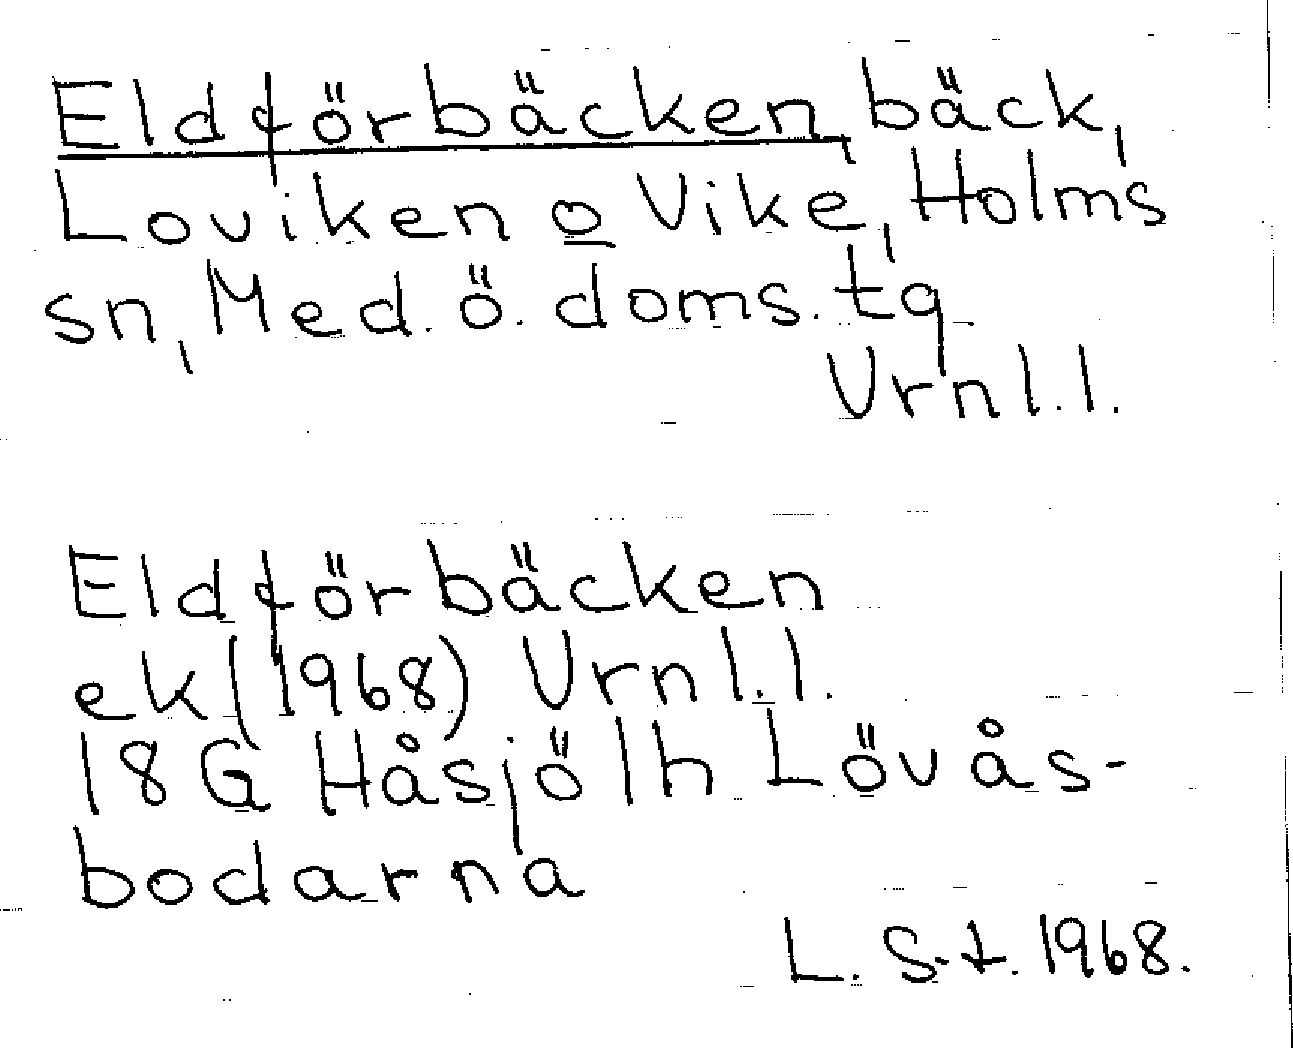 Eldförbäcken, bäck,
Loviken o Vike, Holms
sn, Med. ö. doms. tg
Urnl.l.
Eldförbäcken
ek (1968) Urnl.l.
18 G Håsjö lh Lövås-
bodarna
L. S-t. 1968.